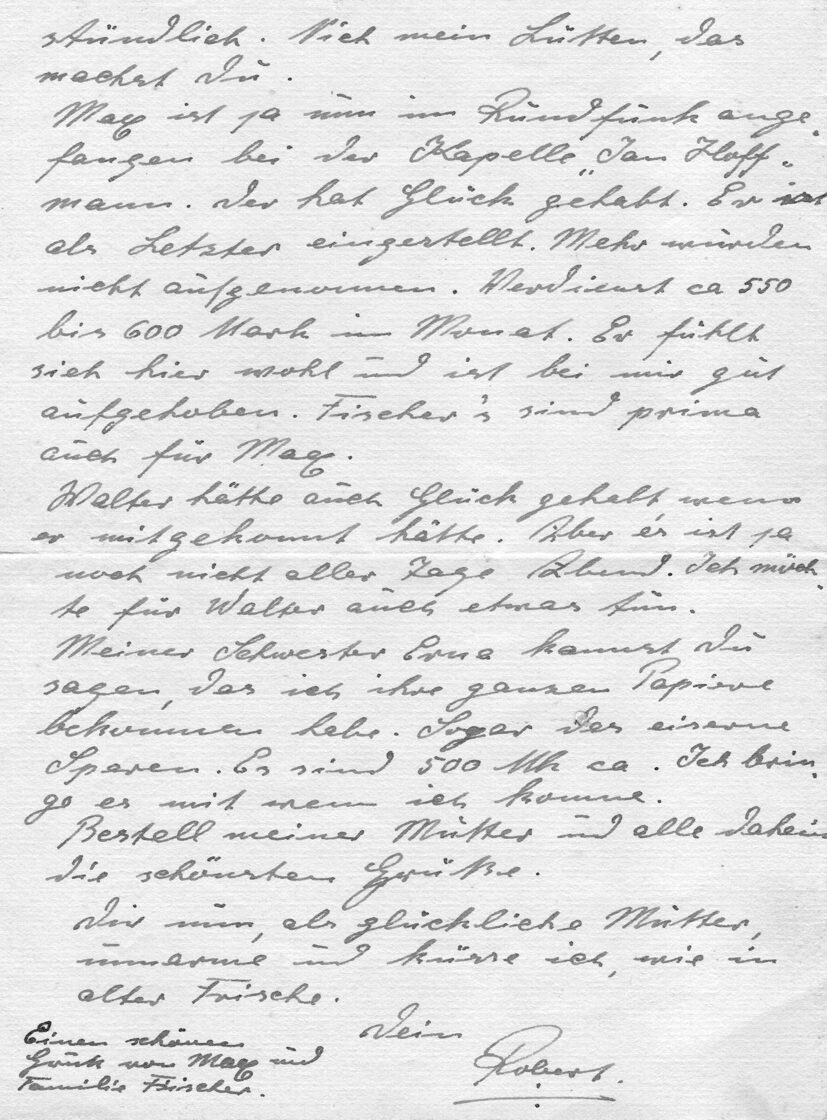 stündlich. Nich mein Lütten, das
machst Du.
Max ist ja nun im Rundfunk ange-
fangen bei der Kapelle „Jan Hoff-
mann. Der hat Glück gehabt. Er ist
als Letzter eingestellt. Mehr wurden
nicht aufgenommen. Verdienst ca 550
bis 600 Mark im Monat. Er fühlt
sich hier wohl und ist bei mir gut
aufgehoben. Fischer's sind prima
auch für Max.
Walter hätte auch Glück gehabt wenn
er mitgekonnt hätte. Aber es ist ja
noch nicht aller Tage Abend. Ich möch-
te für Walter auch etwas tun.
Meiner Schwester Erna kannst Du
sagen, das ich ihre ganzen Papiere
bekommen habe. Sogar das eiserne
Sparen. Es sind 500 Mk ca. Ich brin-
ge es mit wenn ich komme.
Bestell meiner Mutter und alle daheim
die schönsten Grüße.
Dir nun, als glückliche Mutter,
umarme und küsse ich, wie in
alter Frische.
Dein
Robert.
Einen schönen
Gruß von Max und
Familie Fischer.